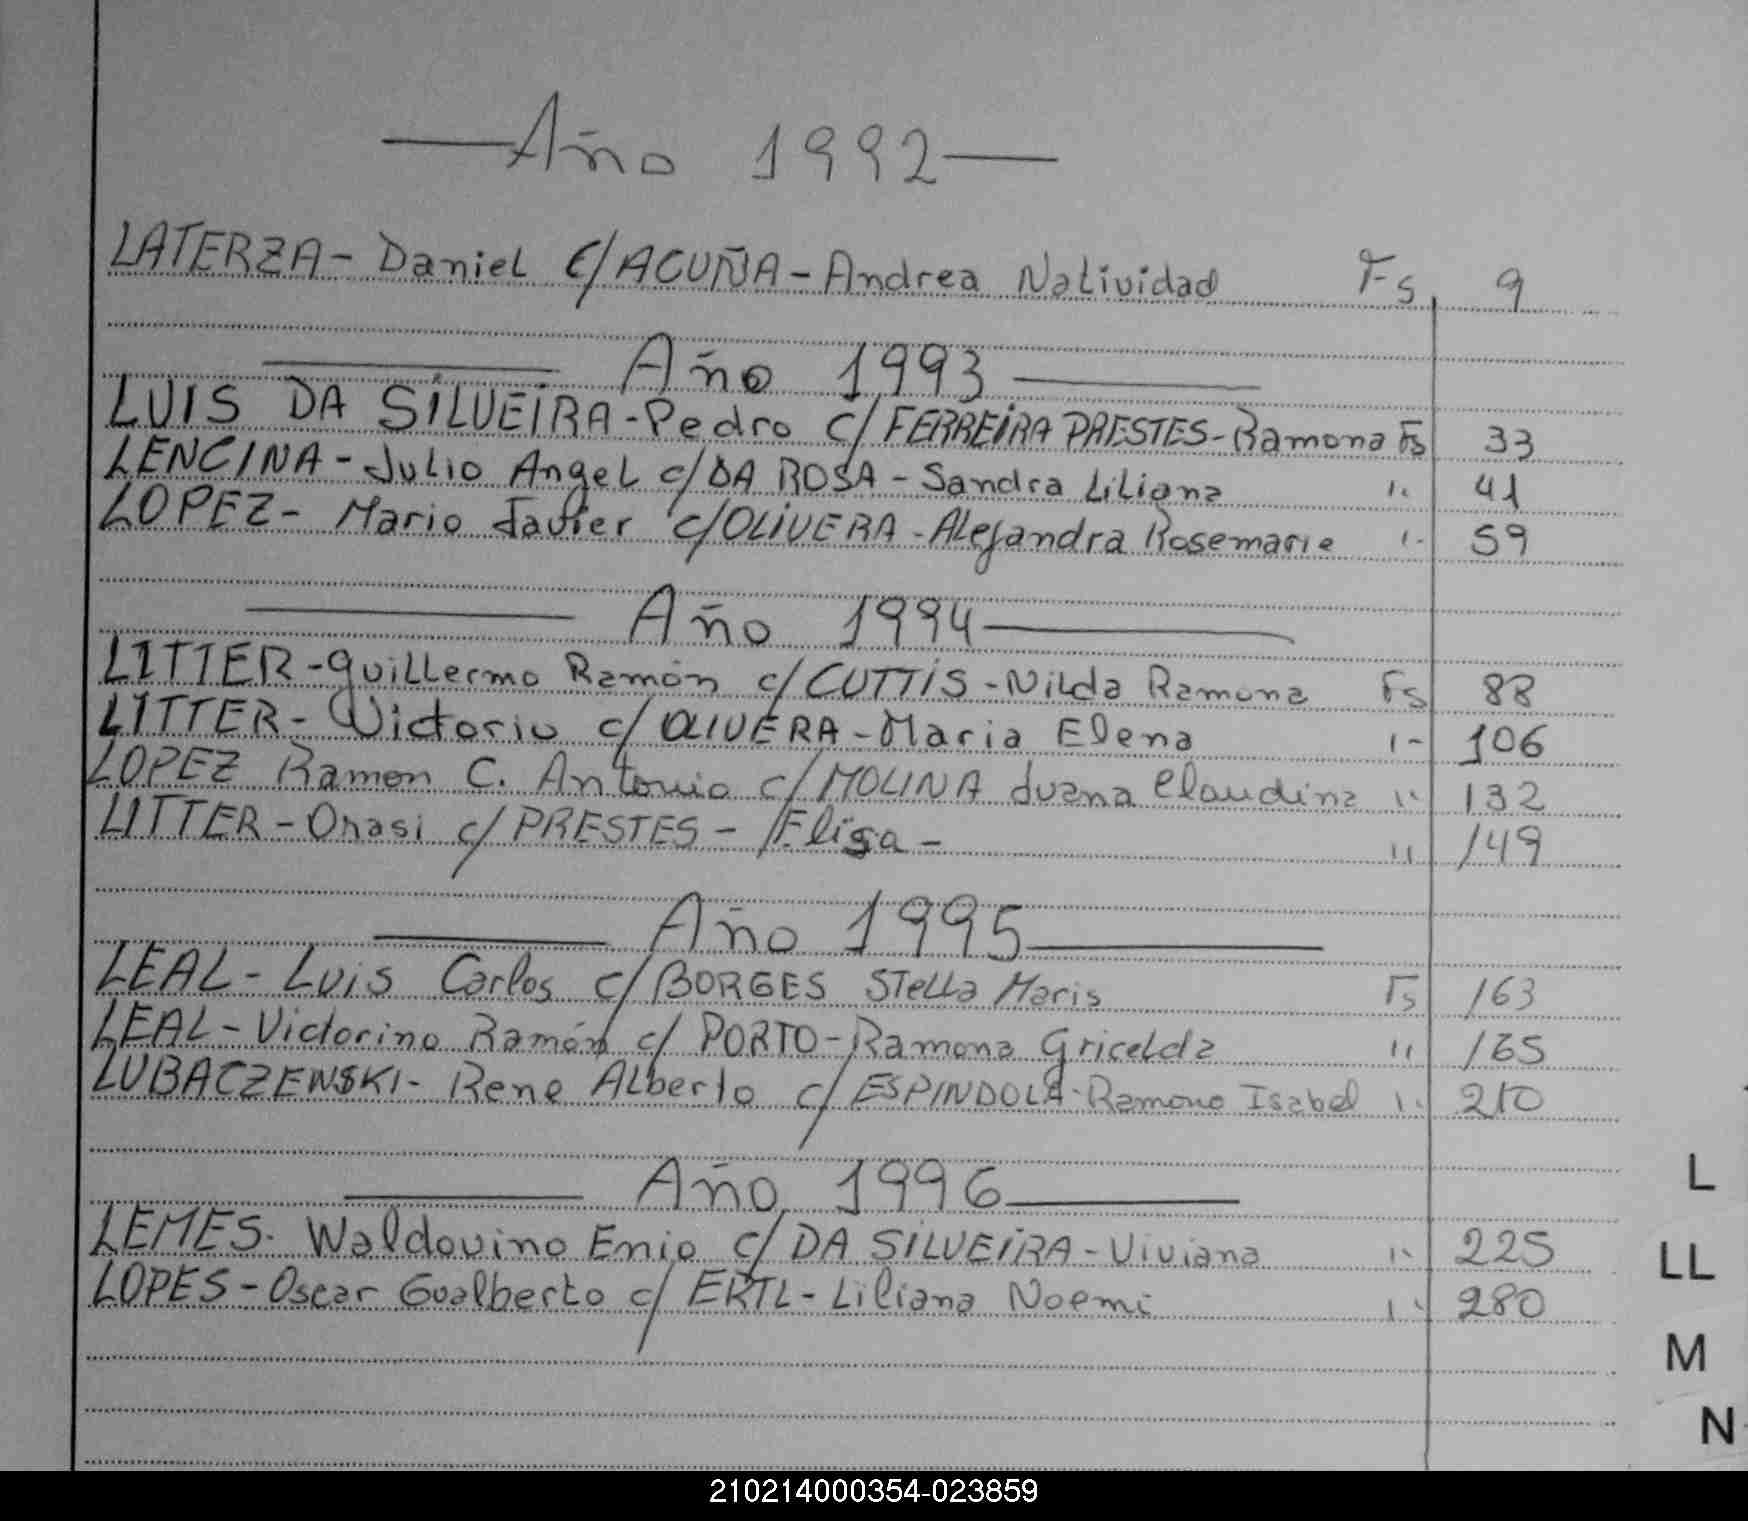 — Año 1992 —
LATERZA - Daniel c/ ACUÑA - Andrea Natividad Fs 9
— Año 1993 —
LUIS DA SILVEIRA - Pedro c/ FERREIRA PRESTES - Ramona Fs 33
LENCINA - Julio Angel c/ DA ROSA - Sandra Liliana " 41
LOPEZ - Mario Javier c/ OLIVERA - Alejandra Rosemarie " 59
— Año 1994 —
LITTER - Guillermo Ramón c/ CUTTIS - Nilda Ramona Fs 88
LITTER - Victorio c/ OLIVERA - Maria Elena " 106
LOPEZ Ramon C. Antonio c/ MOLINA Juana Claudina " 132
LITTER - Onasi c/ PRESTES - Elisa - " 149
— Año 1995 —
LEAL - Luis Carlos c/ BORGES Stella Maris Fs 163
LEAL - Victorino Ramón c/ PORTO - Ramona Gricelda " 165
LUBACZEWSKI - Rene Alberto c/ ESPINDOLA - Ramona Isabel " 210
— Año 1996 —
LEMES. Waldovino Enio c/ DA SILVEIRA - Viviana " 225
LOPES - Oscar Gualberto c/ ERTL - Liliana Noemi " 280
L
LL
M
N
210214000354-023859